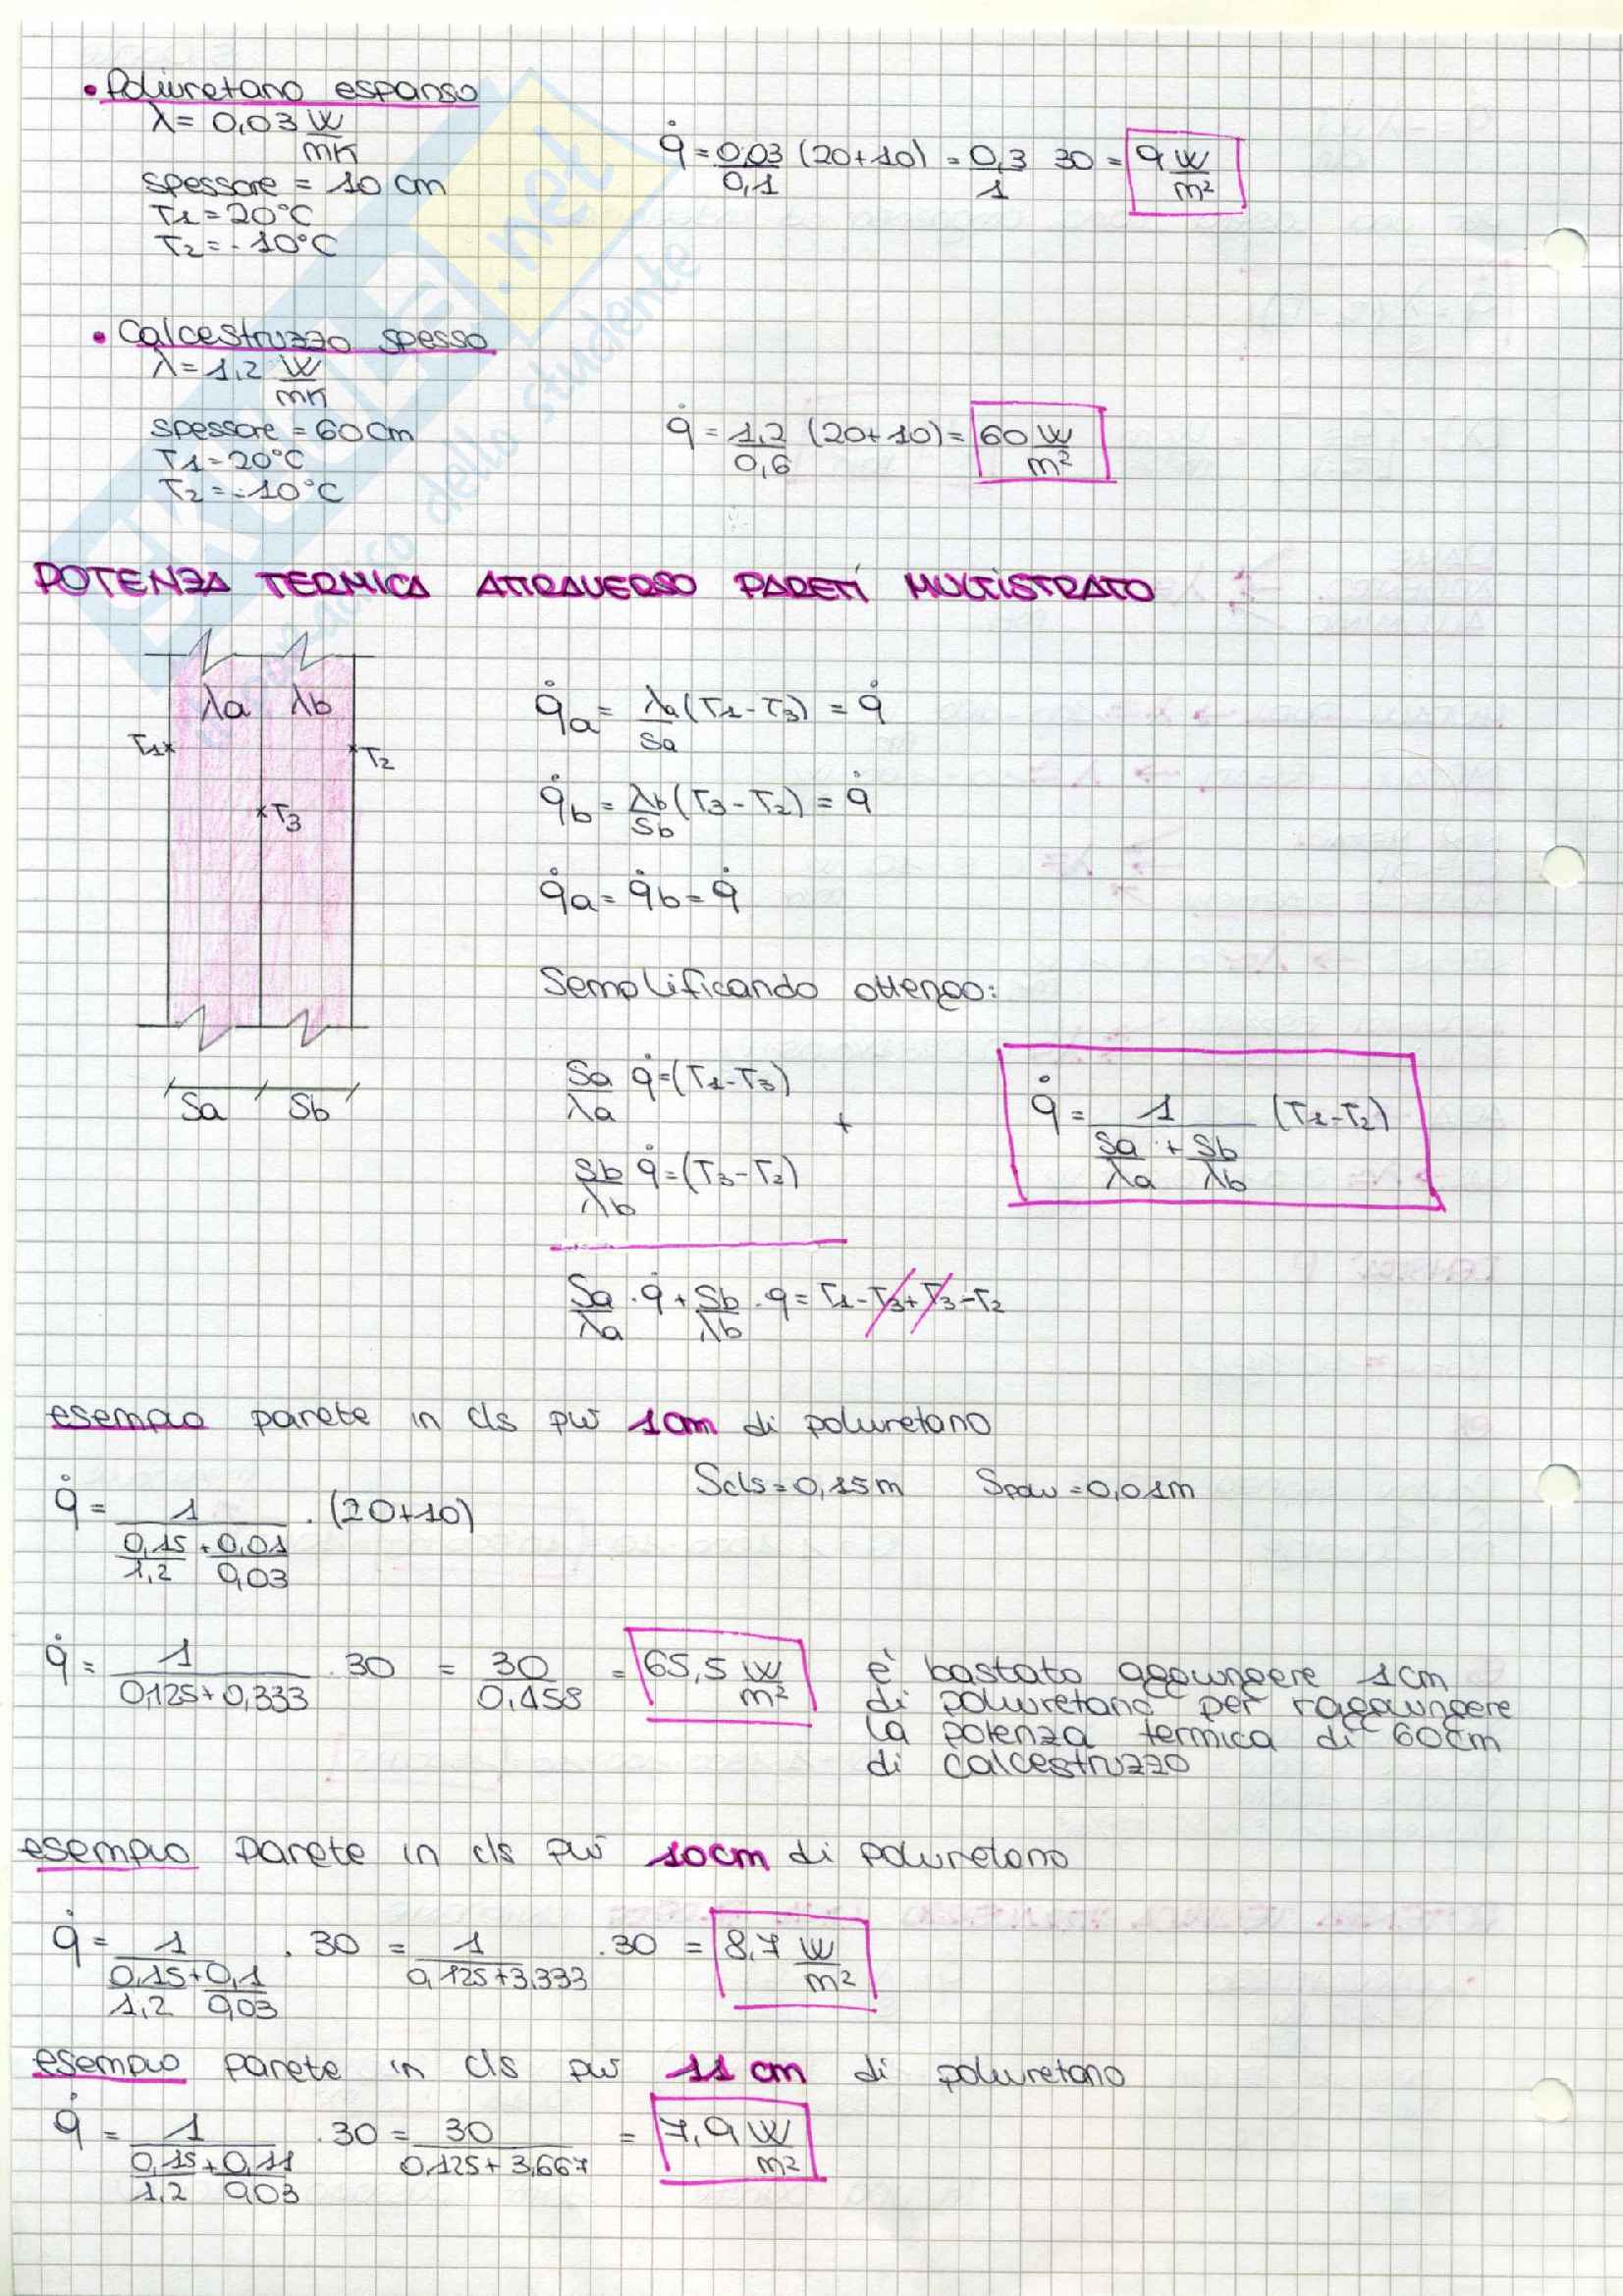 • Poliuretano espanso
λ = 0,03 W/mK
spessore = 10 cm
T1 = 20°C
T2 = -10°C
q̇ = 0,03/0,1 (20+10) = 0,3/1 30 = 9 W/m²
• Calcestruzzo spesso
λ = 1,2 W/mK
spessore = 60 cm
T1 = 20°C
T2 = -10°C
q̇ = 1,2/0,6 (20+10) = 60 W/m²
POTENZA TERMICA ATTRAVERSO PARETI MULTISTRATO
λa λb
T1
T2
T3
Sa Sb
q̇a = λa/Sa (T1-T3) = q̇
q̇b = λb/Sb (T3-T2) = q̇
q̇a = q̇b = q̇
Semplificando ottengo:
Sa/λa q̇ = (T1-T3)
+
Sb/λb q̇ = (T3-T2)
q̇ = 1/(Sa/λa + Sb/λb) (T1-T2)
Sa/λa · q̇ + Sb/λb · q = T1-T3+T3-T2
esempio parete in cls più 1cm di poliuretano
Scls = 0,15m Spoliu = 0,01m
q̇ = 1/(0,15/1,2 + 0,01/0,03) · (20+10)
q̇ = 1/(0,125+0,333) · 30 = 30/0,458 = 65,5 W/m²
è bastato aggiungere 1cm
di poliuretano per raggiungere
la potenza termica di 60cm
di calcestruzzo
esempio parete in cls più 10cm di poliuretano
q̇ = 1/(0,15/1,2 + 0,1/0,03) · 30 = 1/(0,125+3,333) · 30 = 8,7 W/m²
esempio parete in cls più 11 cm di poliuretano
q̇ = 1/(0,15/1,2 + 0,11/0,03) · 30 = 30/(0,125+3,667) = 7,9 W/m²
.net
dello studente